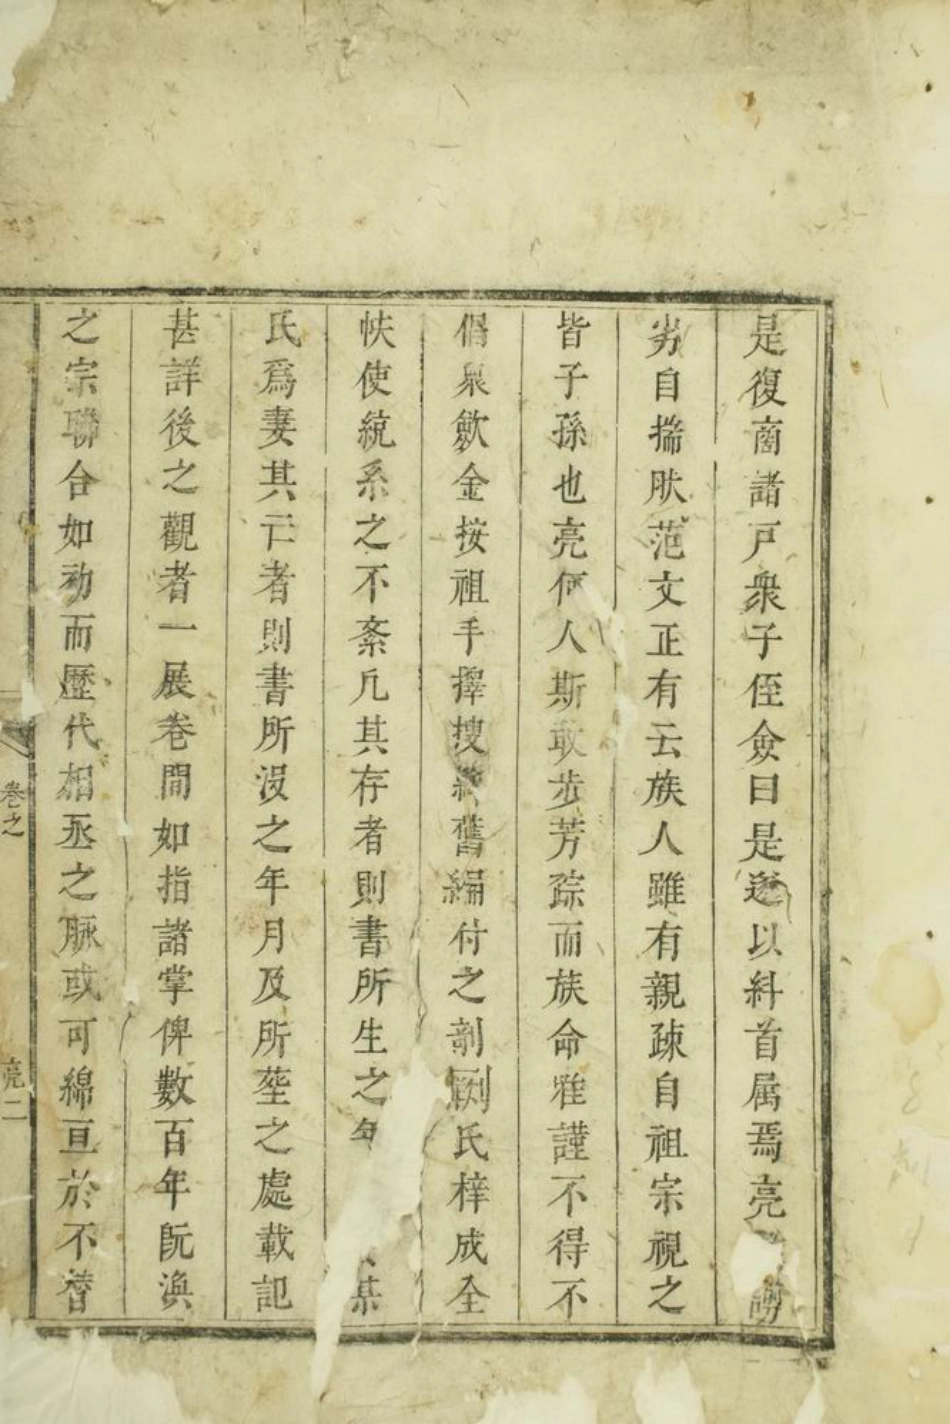 是復商諸戸衆子侄僉曰是遂以糾首属焉亮謭
劣自揣肽范文正有云族人雖有親疎自祖宗視之
皆子孫也亮何人斯敢步芳踪而族命难謹不得不
倡衆歛金按祖手擇搜舊編付之剞劂氏梓成全
帙使統系之不紊凢其存者則書所生之年某
氏爲妻其亡者則書所没之年月及所塟之處載記
甚詳後之觀者一展巻間如指諸掌俾數百年既渙
之宗聯合如初而歷代相丞之脉或可綿亘於不替
巻之
亮二